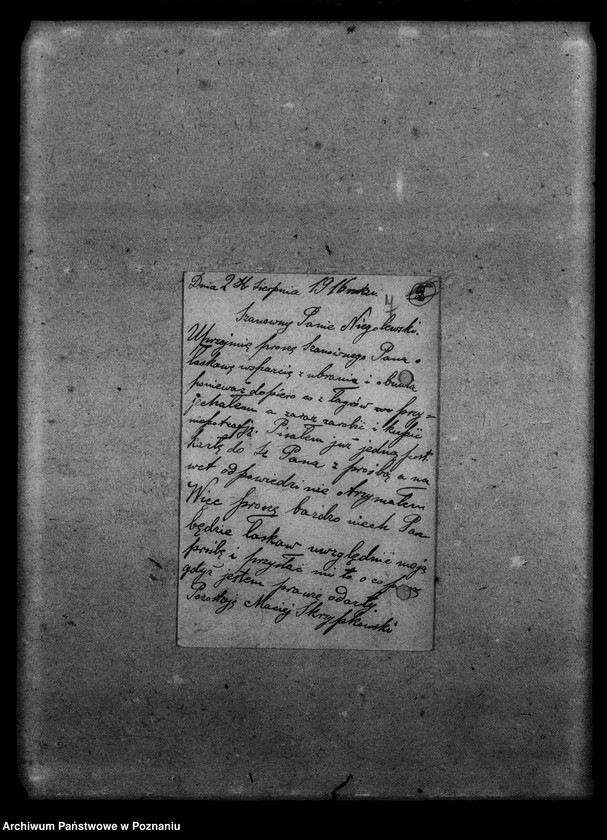 Dnia 24 Sierpnia 1916 roku
7
Szanowny Panie Niegolewski.
Uprzejmię proszę Szanownego Pana o
łaskawę wsparcię z ubrania i obuwia
ponieważ dopiero co z łagrów przy=
jechałem a zaraz zarobić i kupić
niepotrafię. Pisałem już jedną post.
kartę do Sz Pana z prośbą a na
wet odpowiedzi nie otrymałem
Więc proszę bardzo niech Pan
będzie łaskaw uwzględnić moją
prośbę i przysłać mi to o co proszę
gdyż jestem prawie odarty
Pozostaję Maciej Skrzypkowski
Archiwum Państwowe w Poznaniu